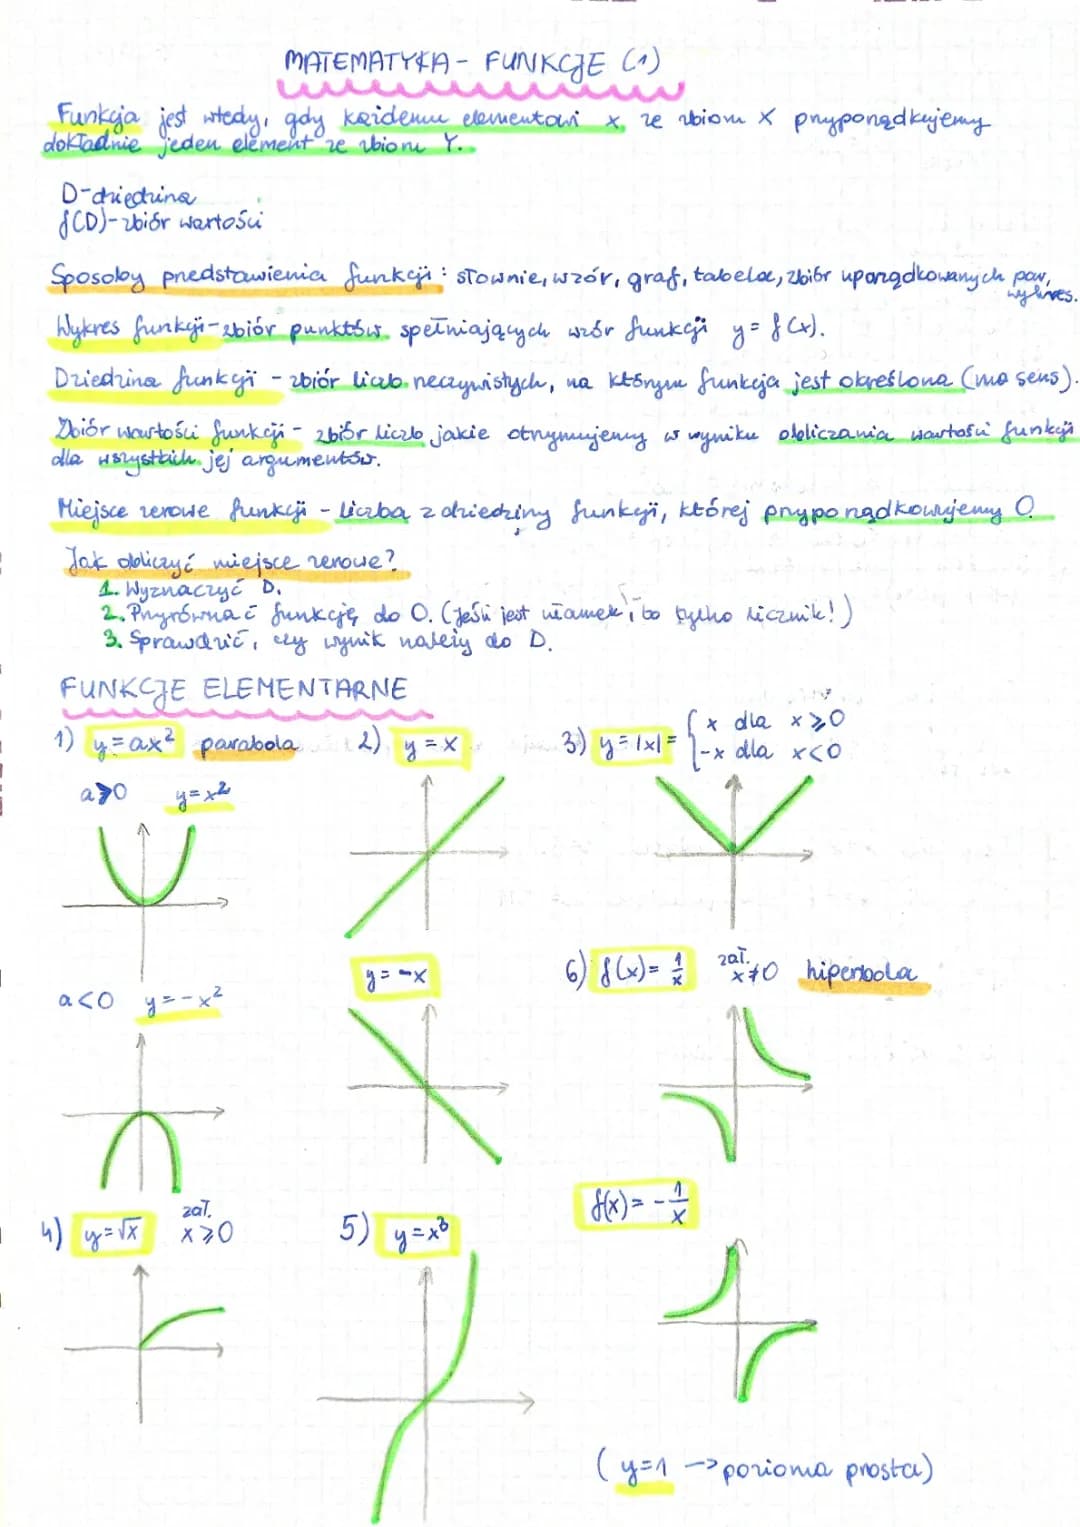 MATEMATYKA - FUNKCJE (1)
Funkcja jest wtedy, gdy każdemu elementowi x, ze zbioru X przyporządkujemy
dokładnie jeden element ze zbioru Y.
D-dziedzina
f(D)-zbiór wartości
Sposoby przedstawienia funkcji: słownie, wzór, graf, tabelka, zbiór uporządkowanych par,
wykres.
Wykres funkcji-zbiór punktów spełniających wzór funkcji y = f(x).
Dziedzina funkcji - zbiór liczb rzeczywistych, na którym funkcja jest określona (ma sens).
Zbiór wartości funkcji - zbiór liczb jakie otrzymujemy w wyniku obliczania wartości funkcji
dla wszystkich jej argumentów.
Miejsce zerowe funkcji - liczba z dziedziny funkcji, której przyporządkowujemy 0.
Jak obliczyć miejsce zerowe?
1. Wyznaczyć D.
2. Przyrównać funkcję do 0. (Jeśli jest ułamek, to tylko licznik!)
3. Sprawdzić, czy wynik należy do D.
FUNKCJE ELEMENTARNE
1) y = ax² parabola
a>0 y=x²
a<0 y=-x²
2) y = x
y = -x
3) y = |x| = { x dla x ⩾ 0
-x dla x<0
4) y=√x zał. x ⩾ 0
5) y=x³
6) f(x) = 1/x zał. x≠0 hiperbola
f(x) = -1/x
(y=1 -> pozioma prosta)